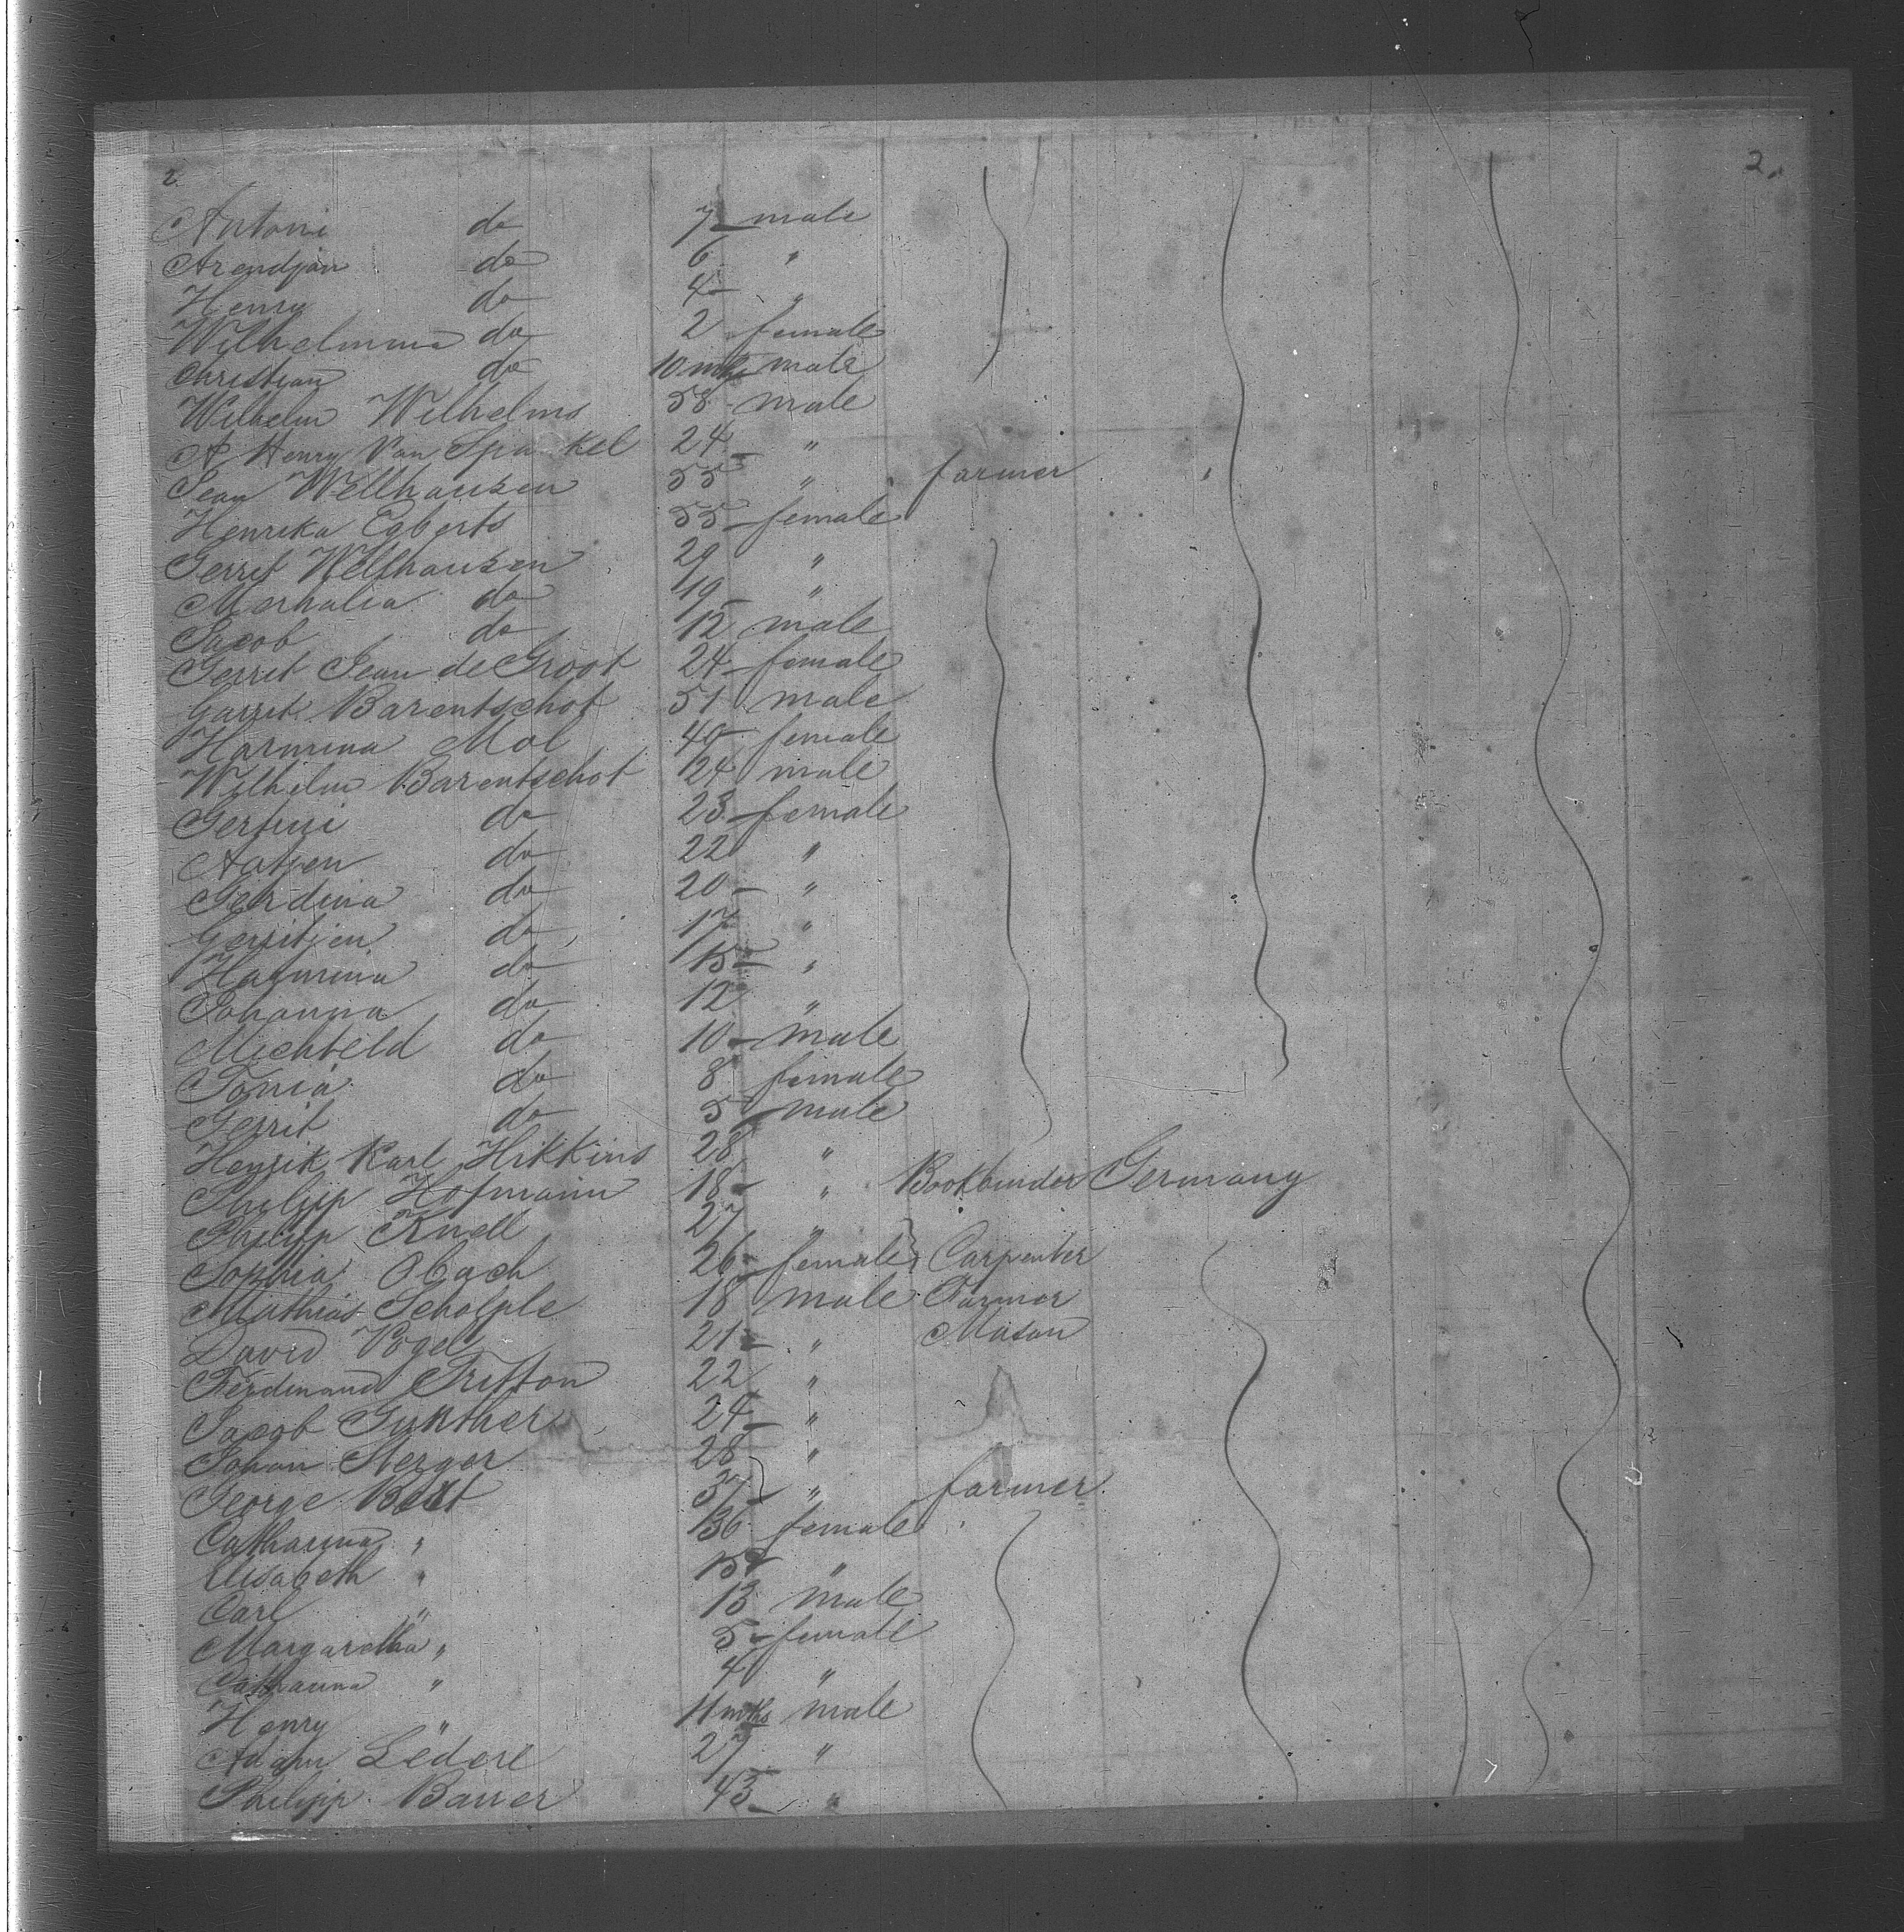 2. 2.
Antoni do 7 male
Arendjan do 6 "
Henry do 4 "
Wilhelmina do 2 female
Christian do 10 mths male
Wilhelm Wilhelms 58 male
A Henry Van Spankel 24 "
Jean Wellhausen 55 " farmer
Henrika Egberts 55 female
Gerrit Wellhausen 29 "
do 19 "
Jacob do 12 male
Gerrit Jean de Groot 24 female
Garret Barentschot 51 male
Harmina Mol 49 female
Wilhelm Barentschot 24 male
do 23 female
Aatjen do 22 "
Gerdina do 20 "
Gerritjen do 17 "
Harmina do 15 "
Johanna do 12 "
Mechteld do 10 male
Tonia do 8 female
Gerrit do 5 male
Henrik Karl Hikkins 28 "
Philipp Hofmann 18 " Bookbinder Germany
Philipp Knell 27 "
Sophia Obach 26 female Carpenter
Mathias Scholple 18 male Farmer
David Vogel 21 " Mason
Ferdinand Trifton 22 "
Jacob Gunther 24 "
Johan 28 "
George 37 " farmer.
Catharina " 36 female
Elisabeth " 15 "
Carl " 13 male
Margaretha " 5 female
Catharina " 4 "
Henry " 11 mths male
Adam Lederl 27 "
Philipp Barrer 43 "